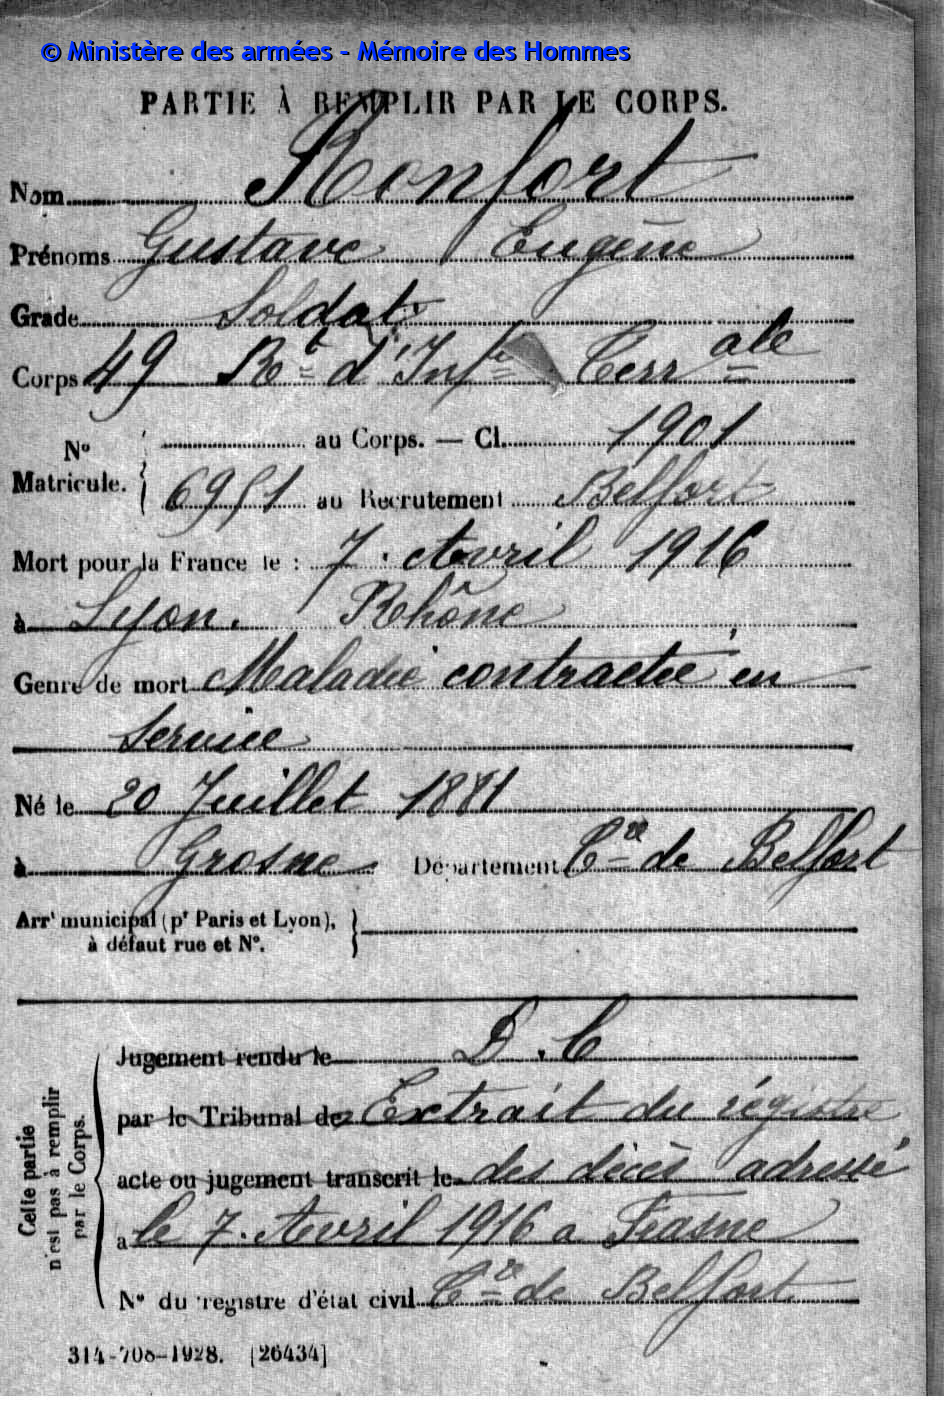 © Ministère des armées - Mémoire des Hommes
PARTIE À REMPLIR PAR LE CORPS.
Nom Monfort
Prénoms Gustave Eugène
Grade Soldat
Corps 49 Rt d'Infie Terrale
No au Corps. — Cl. 1901
Matricule. 6951 au Recrutement Belfort
Mort pour la France le : 7. Avril 1916
à Lyon. Rhône
Genre de mort Maladie contractée en
Service
Né le 20 Juillet 1881
à Grosne Département Tre de Belfort
Arrt municipal (pr Paris et Lyon),
à défaut rue et No.
Cette partie n'est pas à remplir par le Corps.
Jugement rendu le D.C
par le Tribunal de Extrait du régistre
acte ou jugement transcrit le des décès adressé
à le 7. Avril 1916 a
No du registre d'état civil Tre de Belfort
314-708-1928. [26434]